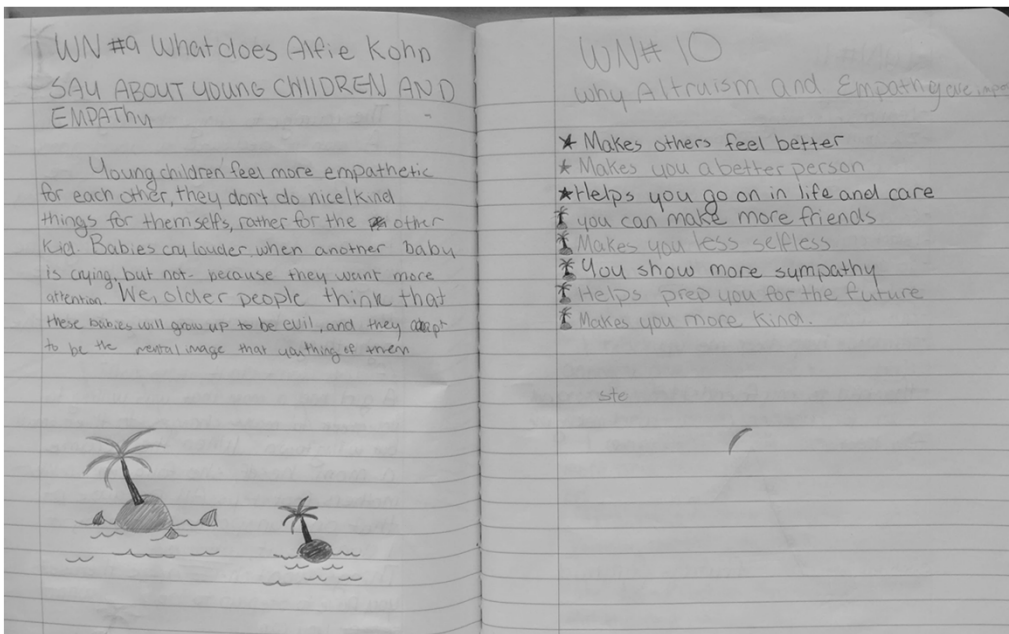 WN #9 What does Alfie Kohn
SAY ABOUT YOUNG CHILDREN AND
EMPAThy
Young children feel more empathetic
for each other, they don't do nice/kind
things for themselfs, rather for the other
kid. Babies cry louder when another baby
is crying, but not because they want more
attention. We, older people think that
these babies will grow up to be evil, and they adapt
to be the mental image that you thing of them
WN# 10
Why Altruism and Empathy are
Makes others feel better
Makes you a better person
Helps you go on in life and care
you can make more friends
Makes you less selfless
You show more sympathy
Helps prep you for the future
Makes you more kind.
ste